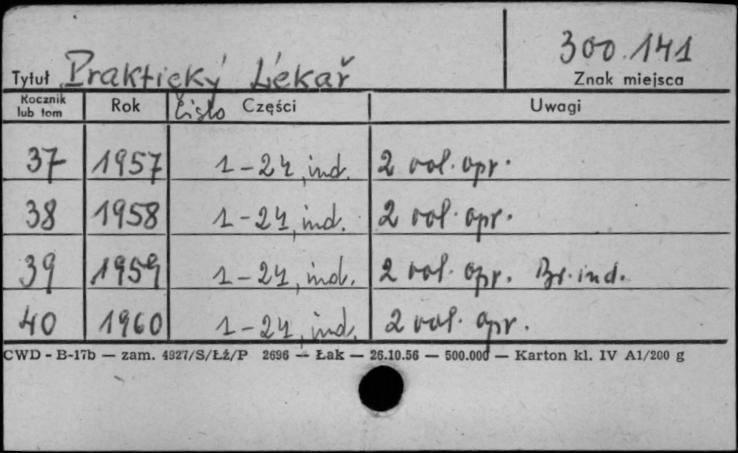 300.141
Tytuł Praktický Lékař Znak miejsca
Rocznik lub tom Rok Číslo Części Uwagi
37 1957 1-24, ind. 2 vol. opr.
38 1958 1-24, ind. 2 vol. opr.
39 1959 1-24, ind. 2 vol. opr. Br. ind.
40 1960 1-24, ind. 2 vol. opr.
CWD - B-17b — zam. 4927/S/Łź/P 2696 — Łak — 26.10.56 — 500.000 — Karton kl. IV A1/200 g